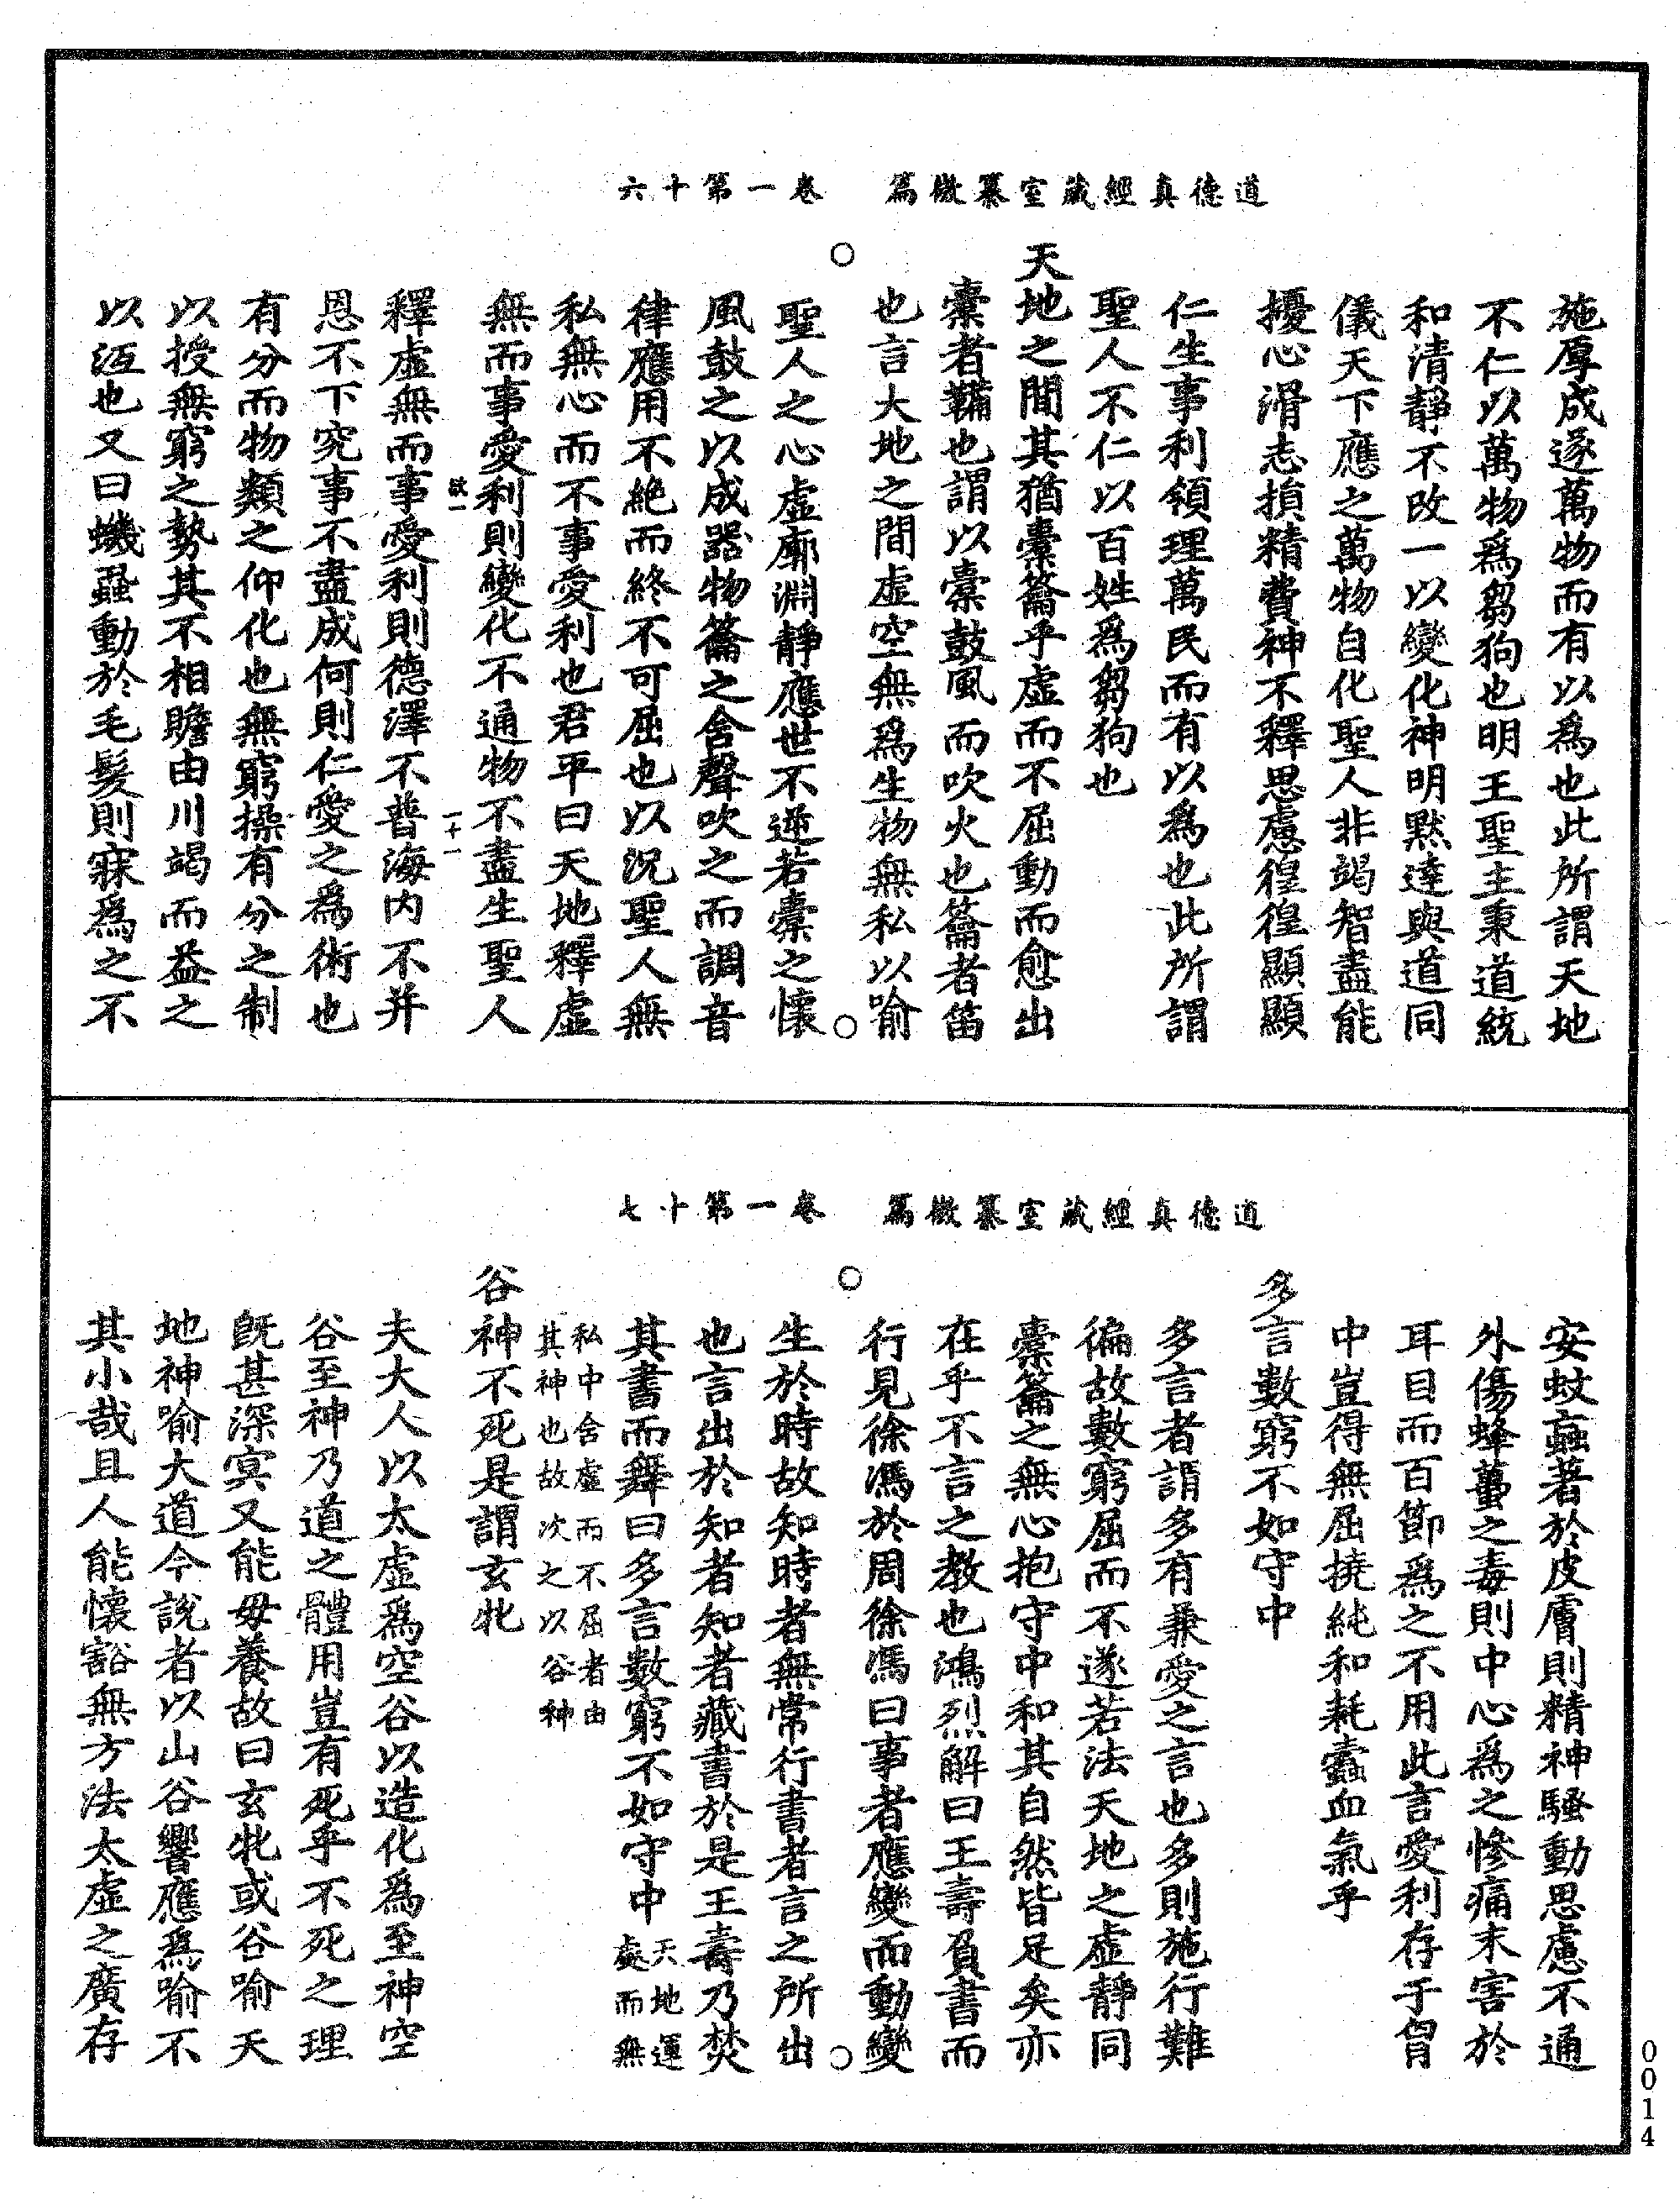 道德真經藏室纂微篇　卷一第十六
施厚成遂萬物而有以爲也此所謂天地
不仁以萬物爲芻狗也明王聖主秉道統
和清靜不改一以變化神明默達與道同
儀天下應之萬物自化聖人非竭智盡能
擾心滑志損精費神不釋思慮徨徨顯顯
仁生事利領理萬民而有以爲也此所謂
聖人不仁以百姓爲芻狗也
天地之間其猶橐籥乎虛而不屈動而愈出
橐者韛也謂以橐鼓風而吹火也籥者笛
也言大地之間虛空無爲生物無私以喻
聖人之心虛廓淵靜應世不逆若橐之懷
風鼓之以成器物籥之含聲吹之而調音
律應用不絶而終不可屈也以況聖人無
私無心而不事愛利也君平曰天地釋虛
無而事愛利則變化不通物不盡生聖人
欲一　一十一
釋虛無而事愛利則德澤不普海内不并
恩不下究事不盡成何則仁愛之爲術也
有分而物類之仰化也無窮操有分之制
以授無窮之勢其不相贍由川竭而益之
以泣也又曰蟣蝨動於毛髮則寐爲之不
道德真經藏室纂微篇　卷一第十七
安蚊䖟著於皮膚則精神騷動思慮不通
外傷蜂蠆之毒則中心爲之慘痛末害於
耳目而百節爲之不用此言愛利存于胷
中豈得無屈撓純和耗蠹血氣乎
多言數窮不如守中
多言者謂多有兼愛之言也多則施行難
徧故數窮屈而不遂若法天地之虛靜同
橐籥之無心抱守中和其自然皆足矣亦
在乎不言之教也鴻烈解曰王壽負書而
行見徐馮於周徐馮曰事者應變而動變
生於時故知時者無常行書者言之所出
也言出於知者知者藏書於是王壽乃焚
其書而舞曰多言數窮不如守中天地運
處而無
私中含虛而不屈者由
其神也故次之以谷神
谷神不死是謂玄牝
夫大人以太虛爲空谷以造化爲至神空
谷至神乃道之體用豈有死乎不死之理
旣甚深冥又能毋養故曰玄牝或谷喻天
地神喻大道今說者以山谷響應爲喻不
其小哉且人能懷豁無方法太虛之廣存
0014